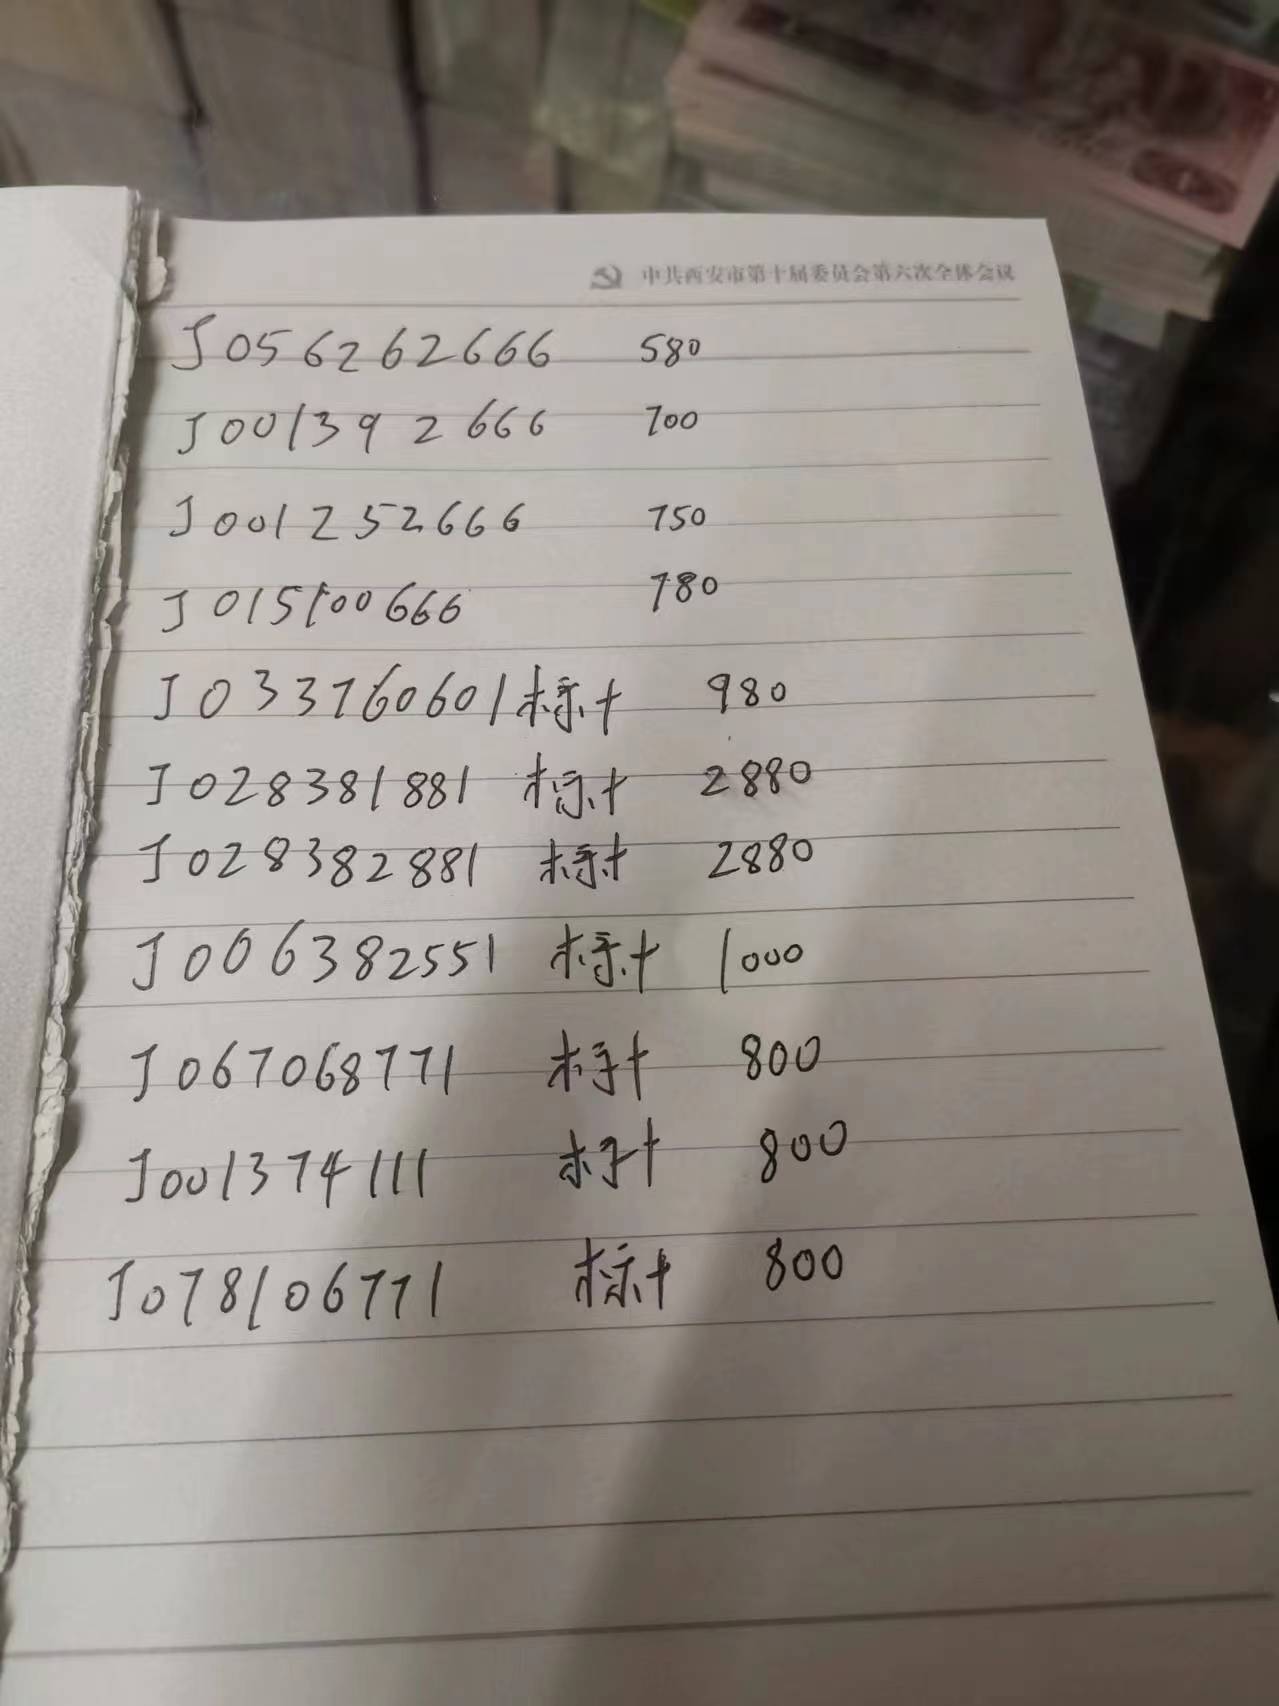 中共西安市第十届委员会第六次全体会议
J056262666 580
J001392666 700
J001252666 750
J015100666 780
J033760601 标十 980
J028381881 标十 2880
J028382881 标十 2880
J006382551 标十 1000
J067068771 标十 800
J001374111 标十 800
J078106771 标十 800